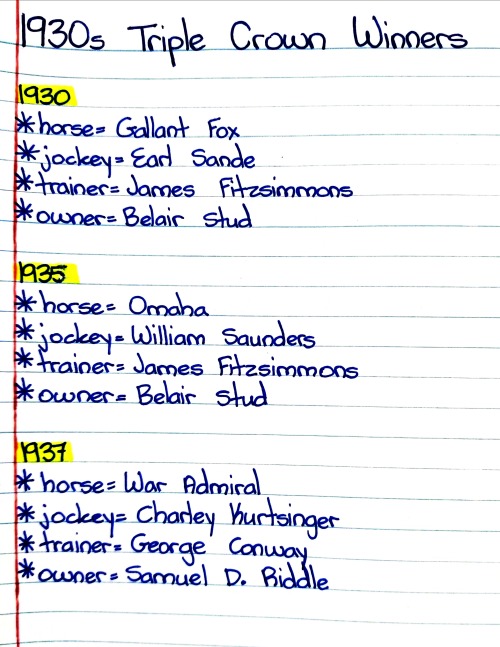 1930s Triple Crown Winners
1930
*horse= Gallant Fox
*jockey= Earl Sande
*trainer= James Fitzsimmons
*owner= Belair Stud
1935
*horse= Omaha
*jockey= William Saunders
*trainer= James Fitzsimmons
*owner= Belair Stud
1937
*horse= War Admiral
*jockey= Charley Kurtsinger
*trainer= George Conway
*owner= Samuel D. Riddle